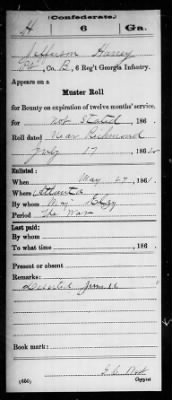 (Confederate.)
H 6 Ga.
Jefferson Harvey
Pvt, Co. B, 6 Reg't Georgia Infantry.
Appears on a
Muster Roll
for Bounty on expiration of twelve months' service,
for not stated 186 .
Roll dated Near Richmond
July 17 , 1862.
Enlisted:
When May 27 , 1861.
Where Atlanta
By whom Maj.
Period The War
Last paid:
By whom
To what time , 186 .
Present or absent
Remarks:
Deserted June
Book mark:
Copyist.